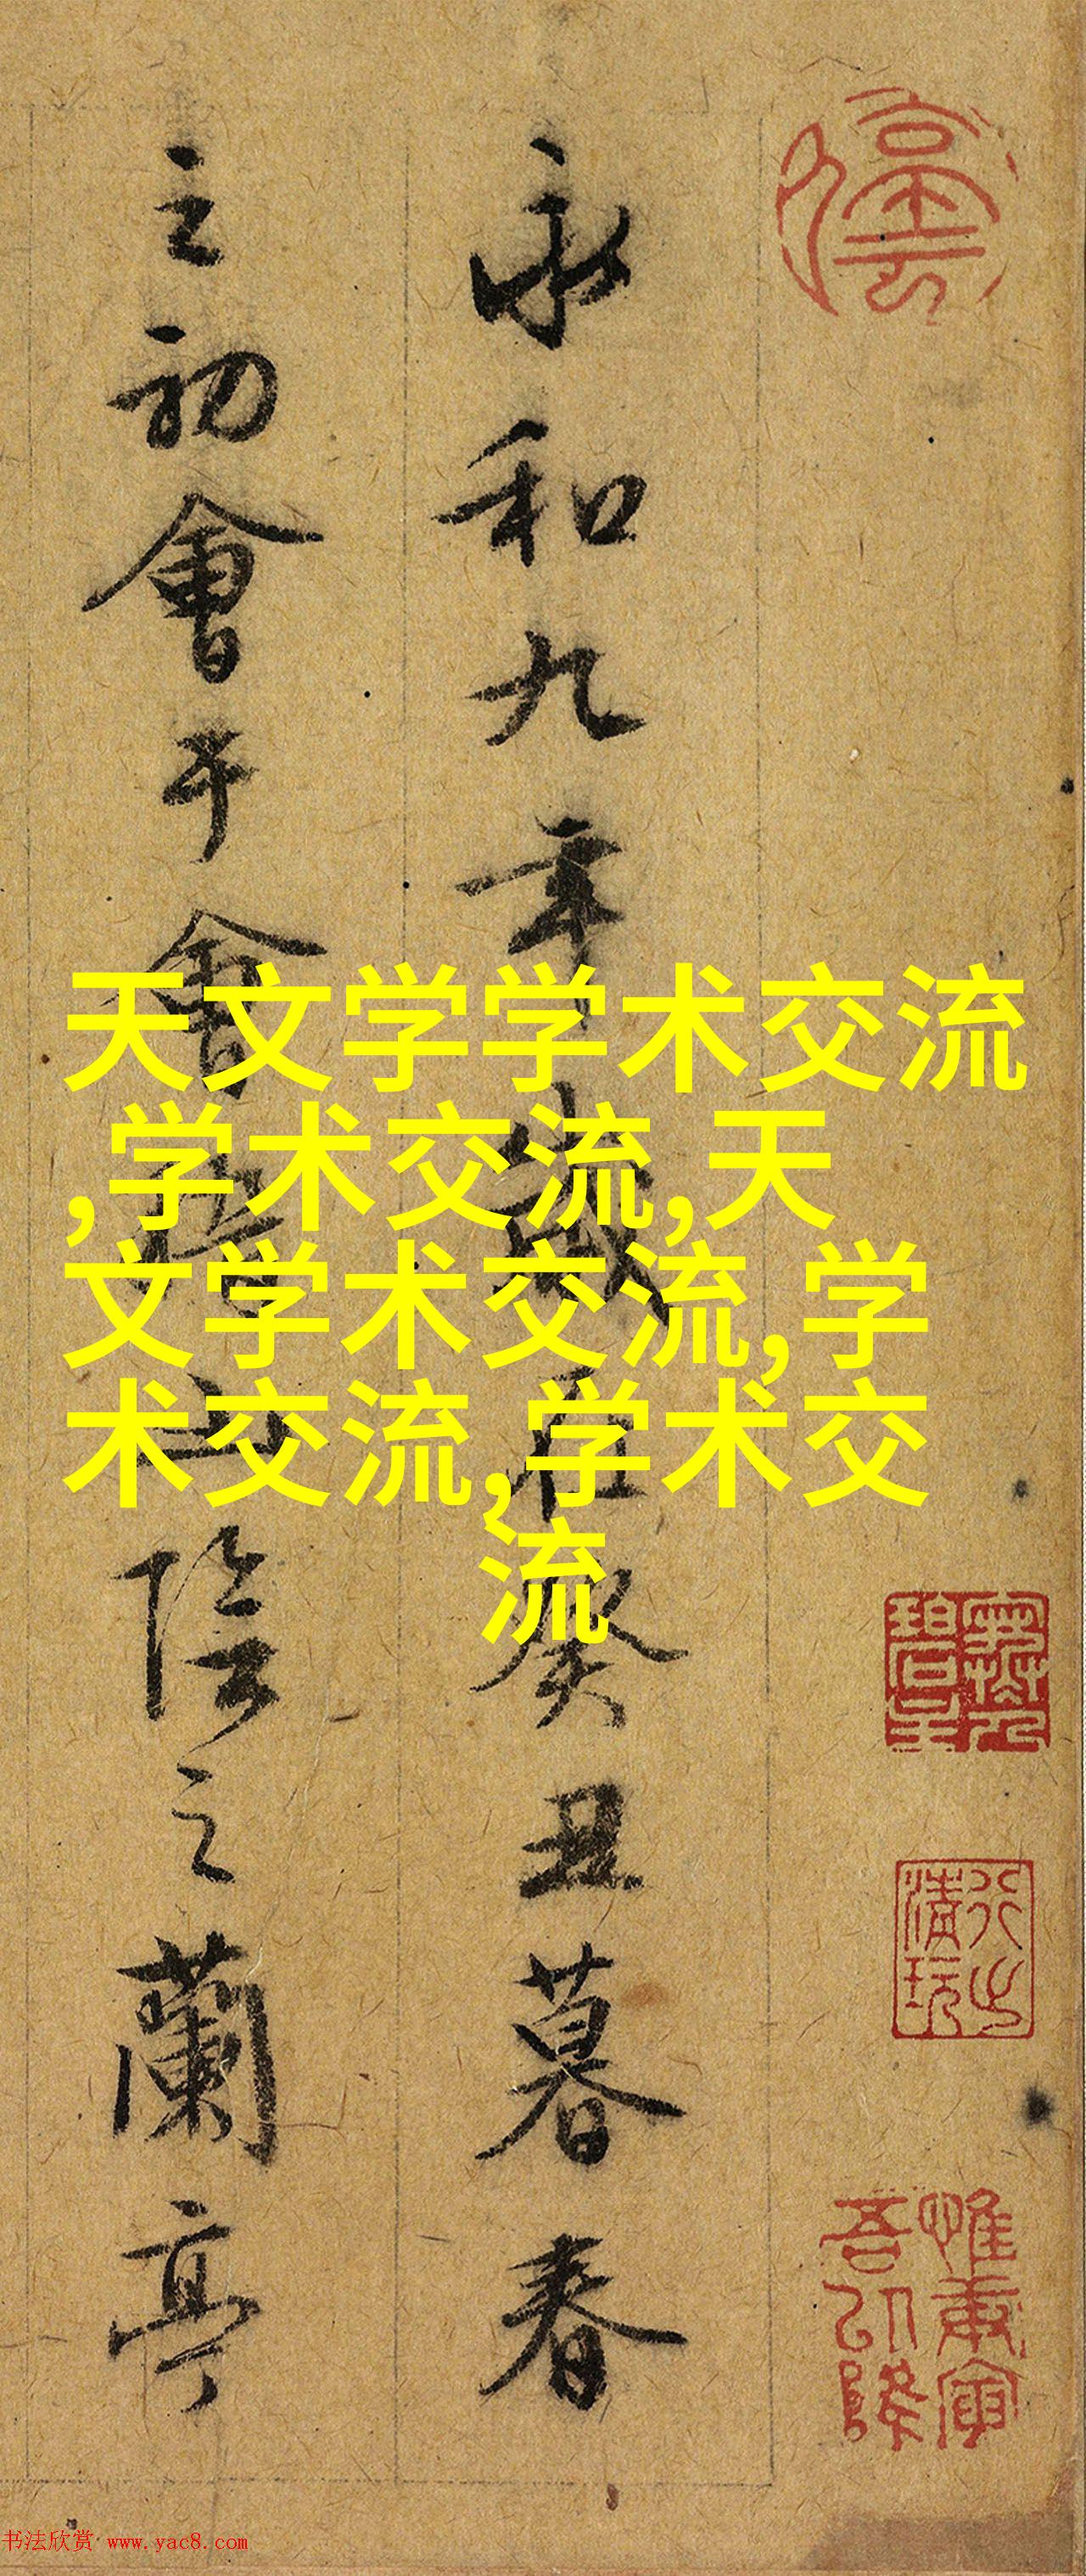 永和九年歲在癸丑暮春
之初會于會稽山陰之蘭亭
天文学学术交流
,学术交流,天
文学术交流,学
术交流,学术交
流
清玩
书法欣赏 www.yac8.com